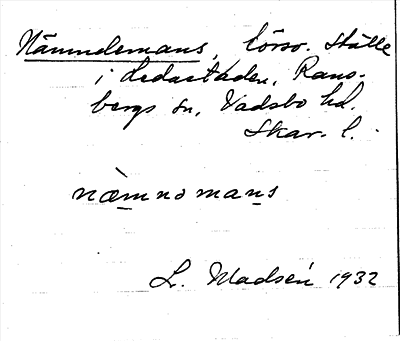 Nämndemans, försv. Ställe
i Hedåstaden, Rans-
bergs sn, Vadsbo hd.
Skar. l.
næmnomans
L. Madsén 1932